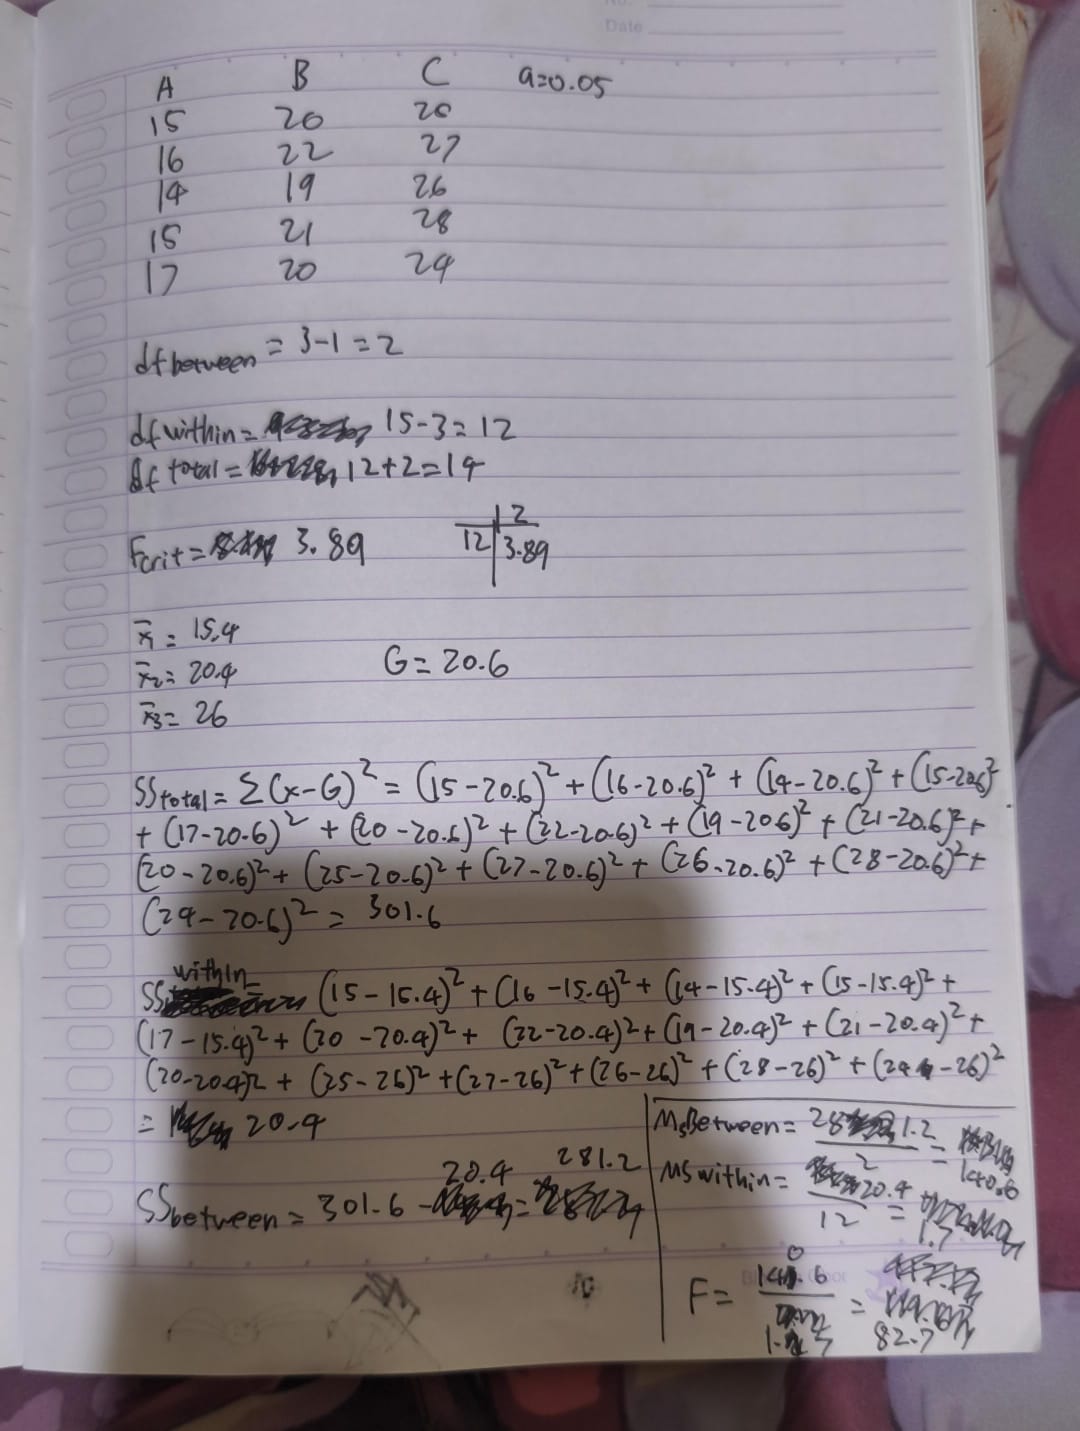 No.
Date
A B C a=0.05
15 20 20
16 22 27
14 19 26
15 21 28
17 20 24
df between = 3-1 = 2
df within = 15-3 = 12
df total = 12+2=14
Fcrit = 3.89
2
12 3.89
x̄1 = 15.4
x̄2 = 20.4 G = 20.6
x̄3 = 26
SStotal = Σ(x-G)² = (15-20.6)² + (16-20.6)² + (14-20.6)² + (15-20.6)²
+ (17-20.6)² + (20-20.6)² + (22-20.6)² + (19-20.6)² + (21-20.6)² +
(20-20.6)² + (25-20.6)² + (27-20.6)² + (26-20.6)² + (28-20.6)² +
(24-20.6)² = 301.6
SS within = (15-15.4)² + (16-15.4)² + (14-15.4)² + (15-15.4)² +
(17-15.4)² + (20-20.4)² + (22-20.4)² + (19-20.4)² + (21-20.4)² +
(20-20.4)² + (25-26)² + (27-26)² + (26-26)² + (28-26)² + (24-26)²
= 20.4
SSbetween = 301.6 - 20.4 = 281.2
MsBetween = 281.2 / 2 = 140.6
MS within = 20.4 / 12 = 1.7
F = 140.6 / 1.7 = 82.7